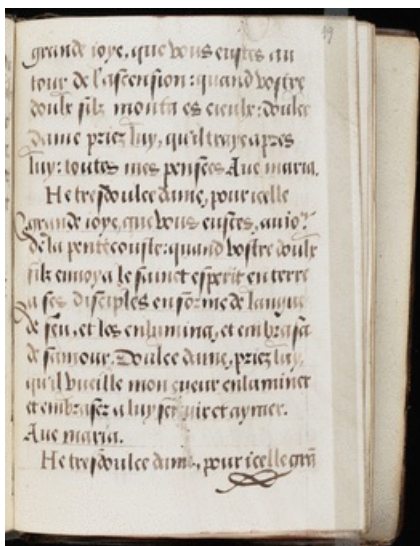 49
grande ioye, que vous eustes au
iour de l'ascension: quand vostre
doulx filz monta es cieulx: doulce
dame priez luy, qu'il traye apres
luy: toutes mes pensees Aue maria.
He tresdoulce dame, pour icelle
grande ioye, que vous eustes, au io.r
de la pentecouste: quand vostre doulx
filz enuoya le sainct esperit en terre
a ses disciples en forme de langue
de feu, et les enlumina, et embrasa
de s'amour. Doulce dame, priez luy,
qu'il vueille mon cueur enluminer
et embraser a luy seruir et aymer.
Aue maria.
He tresdoulce dame, pour icelle